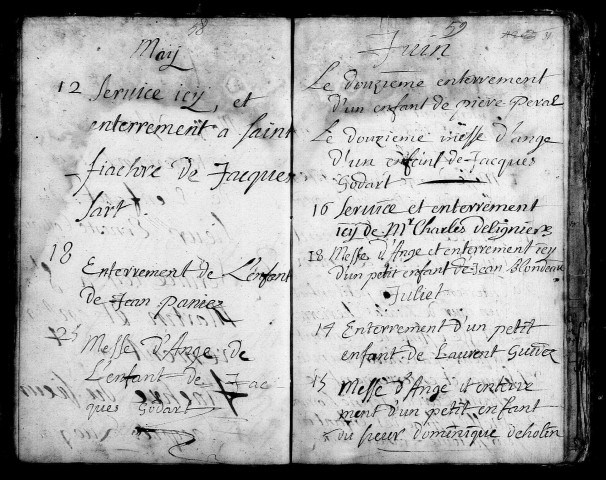 58
May
12 Service icy, et
enterrement a saint
fiachre de Jacques
sart.
18
Enterrement de L'enfant
de Jean paniez
25
Messe d'Ange de
L'enfant de Jac
ques Godart
59
Juin
Le douzieme enterrement
d'un enfant de pière peval
Le douzieme messe d'ange
d'un enfeint de Jacques
Godart
16 Service et enterrement
icy de Mr Charles deligniere
18 Messe d'Ange et enterrement icy
d'un petit enfant de Jean Blondeau
Juliet
14 Enterrement d'un petit
enfant de Laurent
15 Messe d'Ange et enterre
ment d'un petit enfant
du sieur dominique deholin